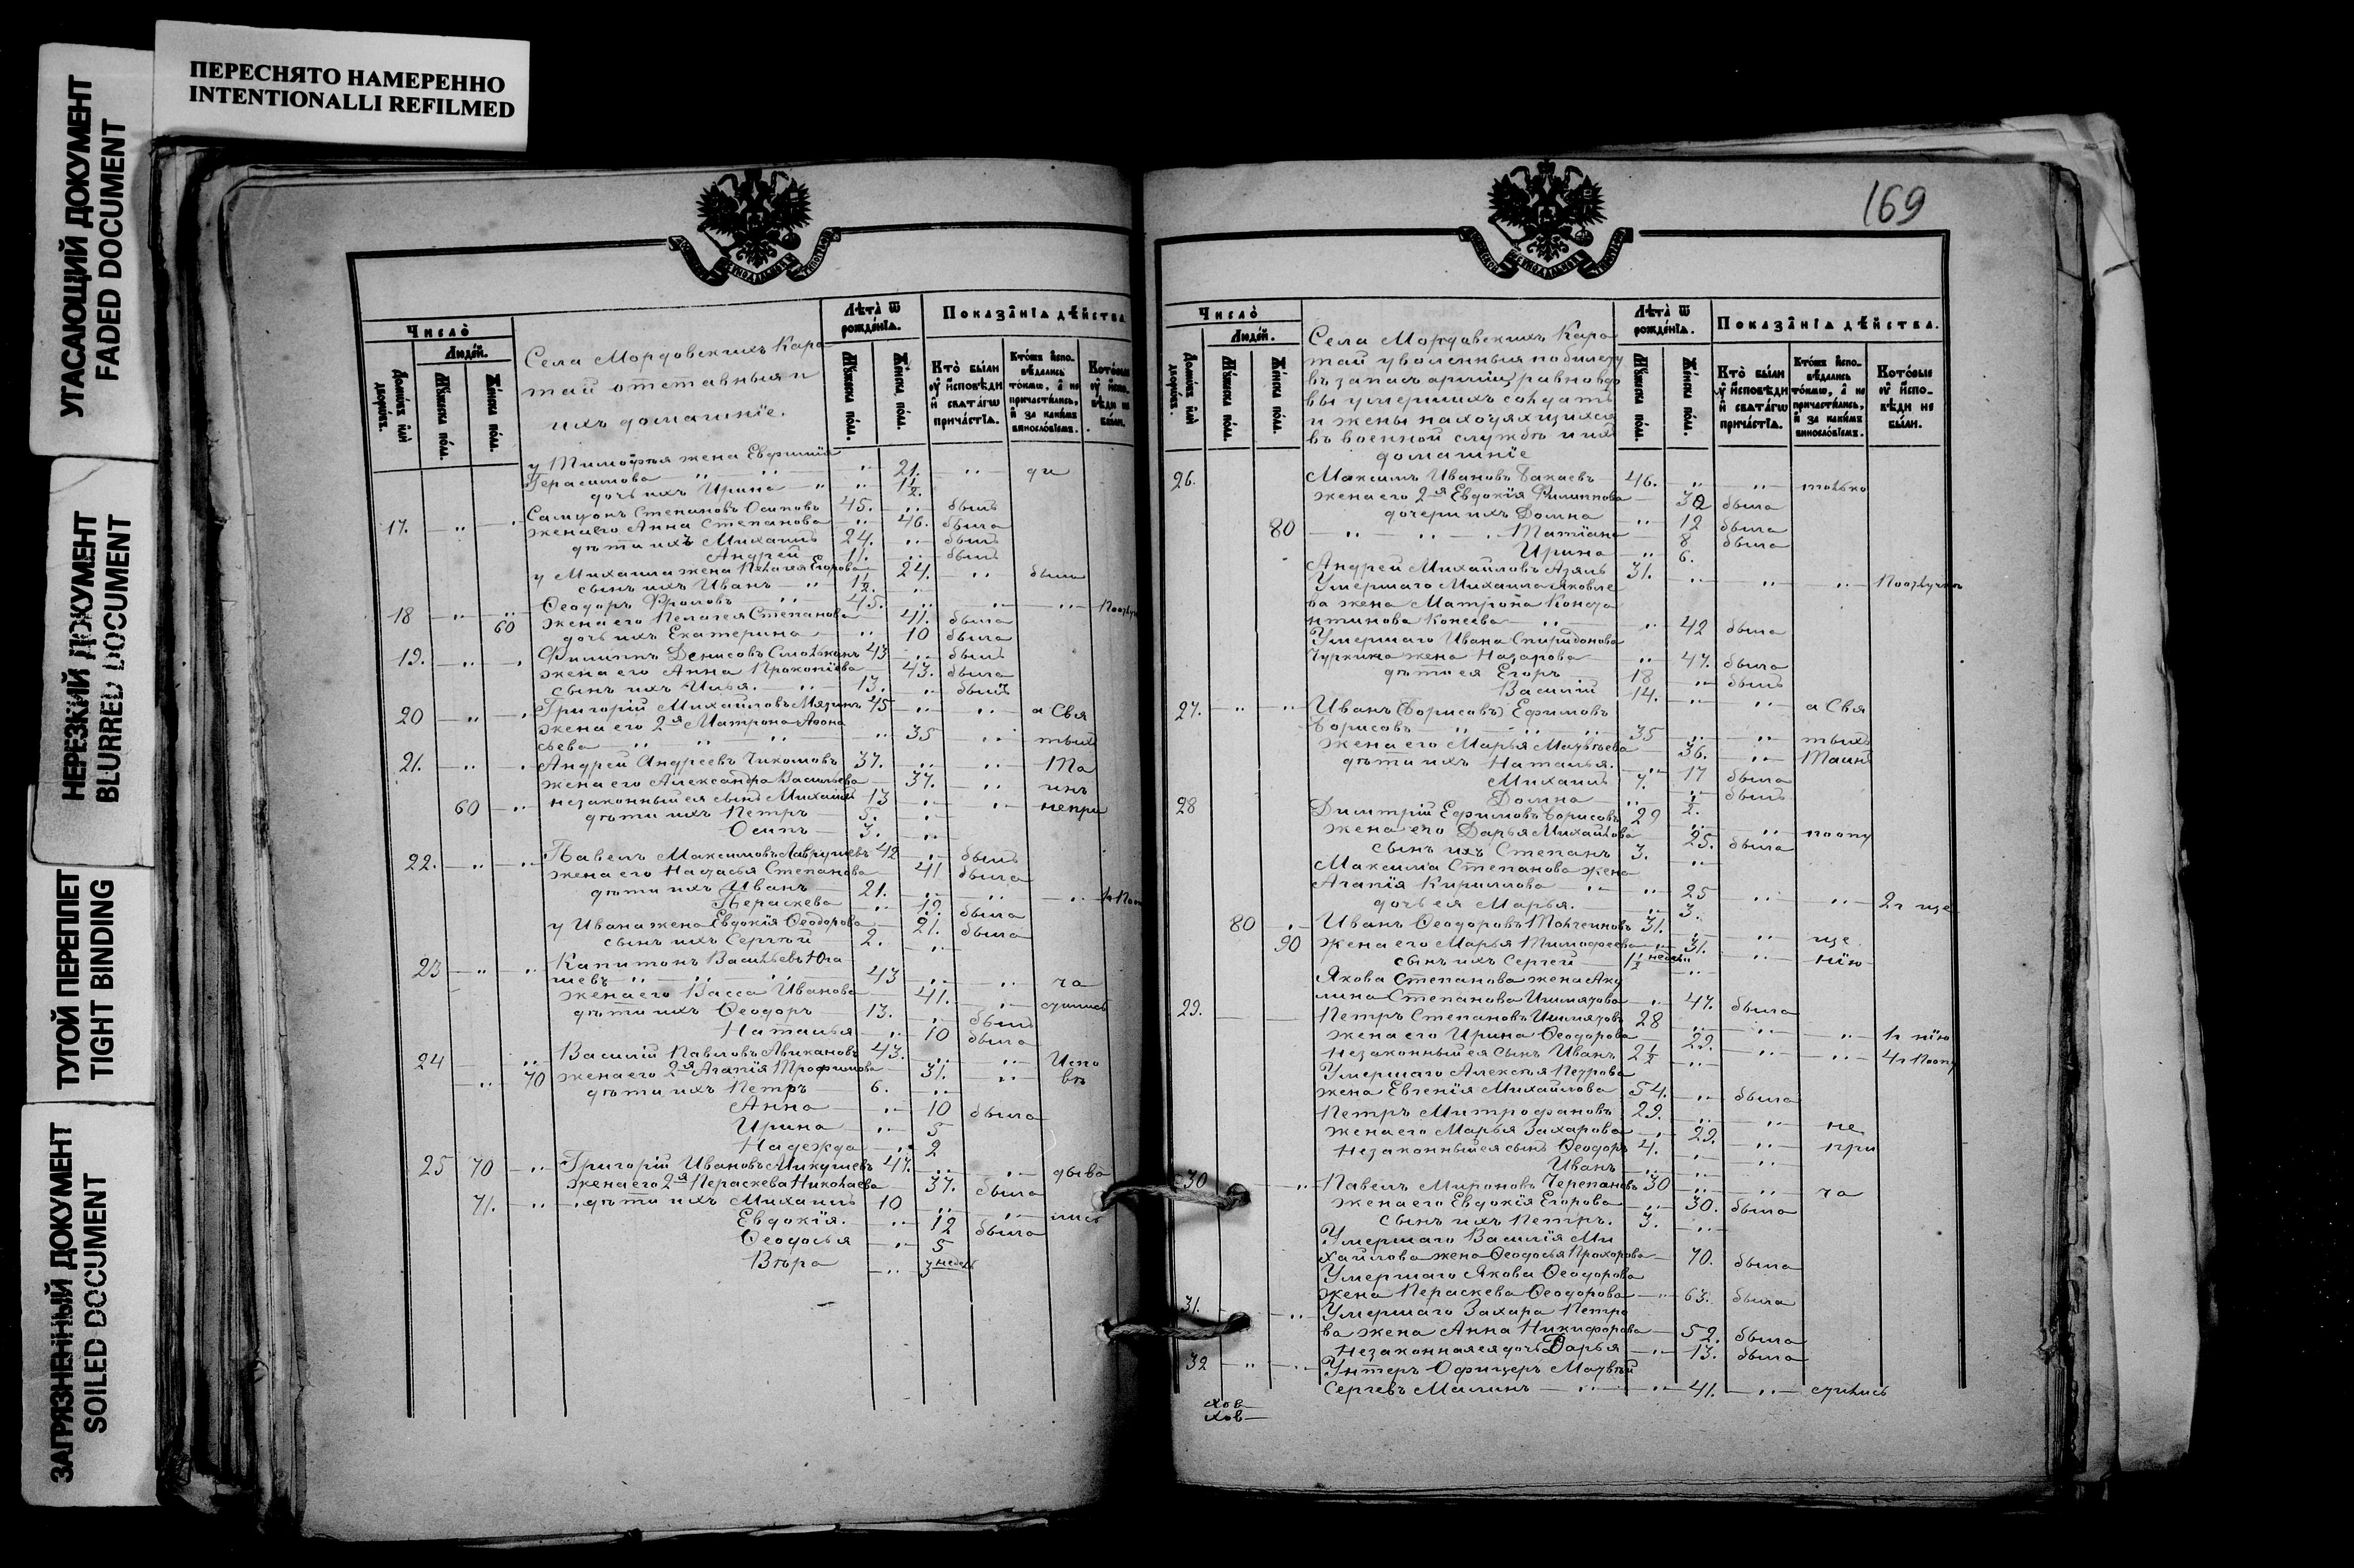 ПЕРЕСНЯТО НАМЕРЕННО
INTENTIONALLI REFILMED
УГАСАЮЩИЙ ДОКУМЕНТ
FADED DOCUMENT
НЕРЕЗКИЙ ДОКУМЕНТ
BLURRED DOCUMENT
ТУГОЙ ПЕРЕПЛЕТ
TIGHT BINDING
ЗАГРЯЗНЕННЫЙ ДОКУМЕНТ
SOILED DOCUMENT
Число̀
Людéй.
Домѡ́въ и҆лѝ дворѡ́въ.
Мꙋ́жеска по́лꙋ.
Же́нска по́лꙋ.
Села Мордовскихъ Кара
тай отставныя и
ихъ домашніе.
Лѣта̀ ѿ рожде́нїѧ.
Мꙋ́жеска по́лꙋ.
Же́нска по́лꙋ.
Показа̑нїѧ дѣ́йства
Кто̀ бы́ли ᲂу҆ и҆сповѣ́ди и҆ свѧта́гѡ прича́стїѧ.
Кто́же и҆спо-вѣ́дались то́кмѡ, а҆ не причасти́лись, и҆ за каки́мъ винослѡ́вїемъ.
Кото́рые ᲂу҆ и҆спо-вѣ́ди не бы́ли.
у Тимофея жена Евфимія
Герасимова " " " 21. " ди
дочь ихъ Ирина " " 1½.
17. " " Самсонъ Степановъ Осиповъ 45. " былъ
жена его Анна Степанова " 46. была
дѣти ихъ Михаилъ 24. " былъ
Андрей 11. " былъ
у Михаила жена Пелагея Егорова 24. " была
сынъ ихъ Иванъ " 1½. "
18 " " Ѳеодоръ Фроловъ " 45. " " "
60 жена его Пелагея Степанова 41. была
дочь ихъ Екатерина " 10 была
19. " " Филиппъ Денисовъ 43 " былъ
жена его Анна Прокопіева 43. была
сынъ ихъ Илья. " 13. " былъ
20 " " Григорій Михайловъ 45 " " а Свя
жена его 2я Матрона Аѳона
сьева " " " " 35 " тыхъ
21. " " Андрей Андреевъ 37. " " Та
жена его Александра Васильева 37. " инъ
60 " незаконный ея сынъ Михаилъ 13 " " непри
дѣти ихъ Петръ 5. "
Осипъ 3. "
22. " " Павелъ Максимовъ 42 " былъ
жена его Настасья Степанова 41 была
дѣти ихъ Иванъ 21. " " "
Параскева " 19. была
у Ивана жена Евдокія Ѳеодорова 21. была
сынъ ихъ Сергѣй 2. "
23 " " Капитонъ Васильевъ Юга
шевъ " " " 43 " " ча
жена его Васса Иванова 41. " стились
дѣти ихъ Ѳеодоръ 13. " былъ
Наталья " 10 была
24 " Василій Павловъ 43. " " Испо
" 70 жена его 2я Агапія Трофимова 31. " вѣ
дѣти ихъ Петръ 6. "
Анна " 10 была
Ирина " 5
Надежда " 2
25 70 " Григорій Ивановъ Микушевъ 47. " " дыва
жена его 2я Параскева Николаева 37. была
71. " дѣти ихъ Михаилъ 10 " " лись
Евдокія. " 12 была
Ѳеодосья " 5
Вѣра " 3 недѣл
169
Число̀
Людéй.
Домѡ́въ и҆лѝ дворѡ́въ.
Мꙋ́жеска по́лꙋ.
Же́нска по́лꙋ.
Села Мордовскихъ Кара
тай уволенныя по билету
въ запасъ арміи, равно вдо
вы умершихъ солдатъ
и жены находящихся
въ военной службѣ и ихъ
домашніе
Лѣта̀ ѿ рожде́нїѧ.
Мꙋ́жеска по́лꙋ.
Же́нска по́лꙋ.
Показа̑нїѧ дѣ́йства.
Кто̀ бы́ли ᲂу҆ и҆сповѣ́ди и҆ свѧта́гѡ прича́стїѧ.
Кто́же и҆спо-вѣ́дались то́кмѡ, а҆ не причасти́лись, и҆ за каки́мъ винослѡ́вїемъ.
Кото́рые ᲂу҆ и҆спо-вѣ́ди не бы́ли.
26. Максимъ Ивановъ Бакаевъ 46. " " только
жена его 2я Евдокія Филиппова 30 была
дочери ихъ Домна " 12 была
80 " " " Татіана 8 была
Ирина " 6.
Андрей Михайловъ 31. " " "
Умершаго Михаила Яковле
ва жена Матрона Конста
нтинова Конеева " " 42 была
Умершаго Ивана Спиридонова
Чуркина жена Назарова " 47. была
дѣти ея Егоръ 18 " былъ
Василій 14. " "
27. " " Иванъ (Борисовъ) Ефимовъ а Свя
Борисовъ " " " 35 " " тыхъ
жена его Марья Матвѣева 36. " Таинъ
дѣти ихъ Наталья. " 17 была
Михаилъ 7. " былъ
Домна " ½.
28 Димитрій Ефимовъ Борисовъ 29 " " поопу
жена его Дарья Михайлова 25. была
сынъ ихъ Степанъ 3. "
Максима Степанова жена
Агапія Кириллова " " 25 " " 2г ще
дочь ея Марья. " 3.
80 " Иванъ Ѳеодоровъ 31. " " ще
90 жена его Марья Тимоѳеева " 31. " нію
сынъ ихъ Сергей 1½ недѣли "
Якова Степанова жена Аку
лина Степанова Ишмятова " 47. была
29. Петръ Степановъ Ишмятовъ 28 " " "
жена его Ирина Ѳеодорова 22. " " 1г нію
Незаконный ея сынъ Иванъ 2½ " 4г Поопу
Умершаго Алексѣя Петрова
жена Евгенія Михайлова 54. " была
Петръ Митрофановъ 29. " " не
жена его Марья Захарова " 29. " при
Незаконный ея сынъ Ѳеодоръ 4. " "
Иванъ " "
30 " Павелъ Мироновъ Черепановъ 30 " " ча
жена его Евдокія Егорова " 30. была
сынъ ихъ Петръ. 3. "
Умершаго Василія Ми
хайлова жена Ѳеодосья Прохорова 70. была
Умершаго Якова Ѳеодорова
жена Параскева Ѳеодорова " 63. была
31. " Умершаго Захара Петро
ва жена Анна Никифорова 52. была
Незаконная ея дочь Дарья " 13. была
32 " " Унтеръ Офицеръ Матвѣй
Сергѣевъ Малинъ " " 41. " стились